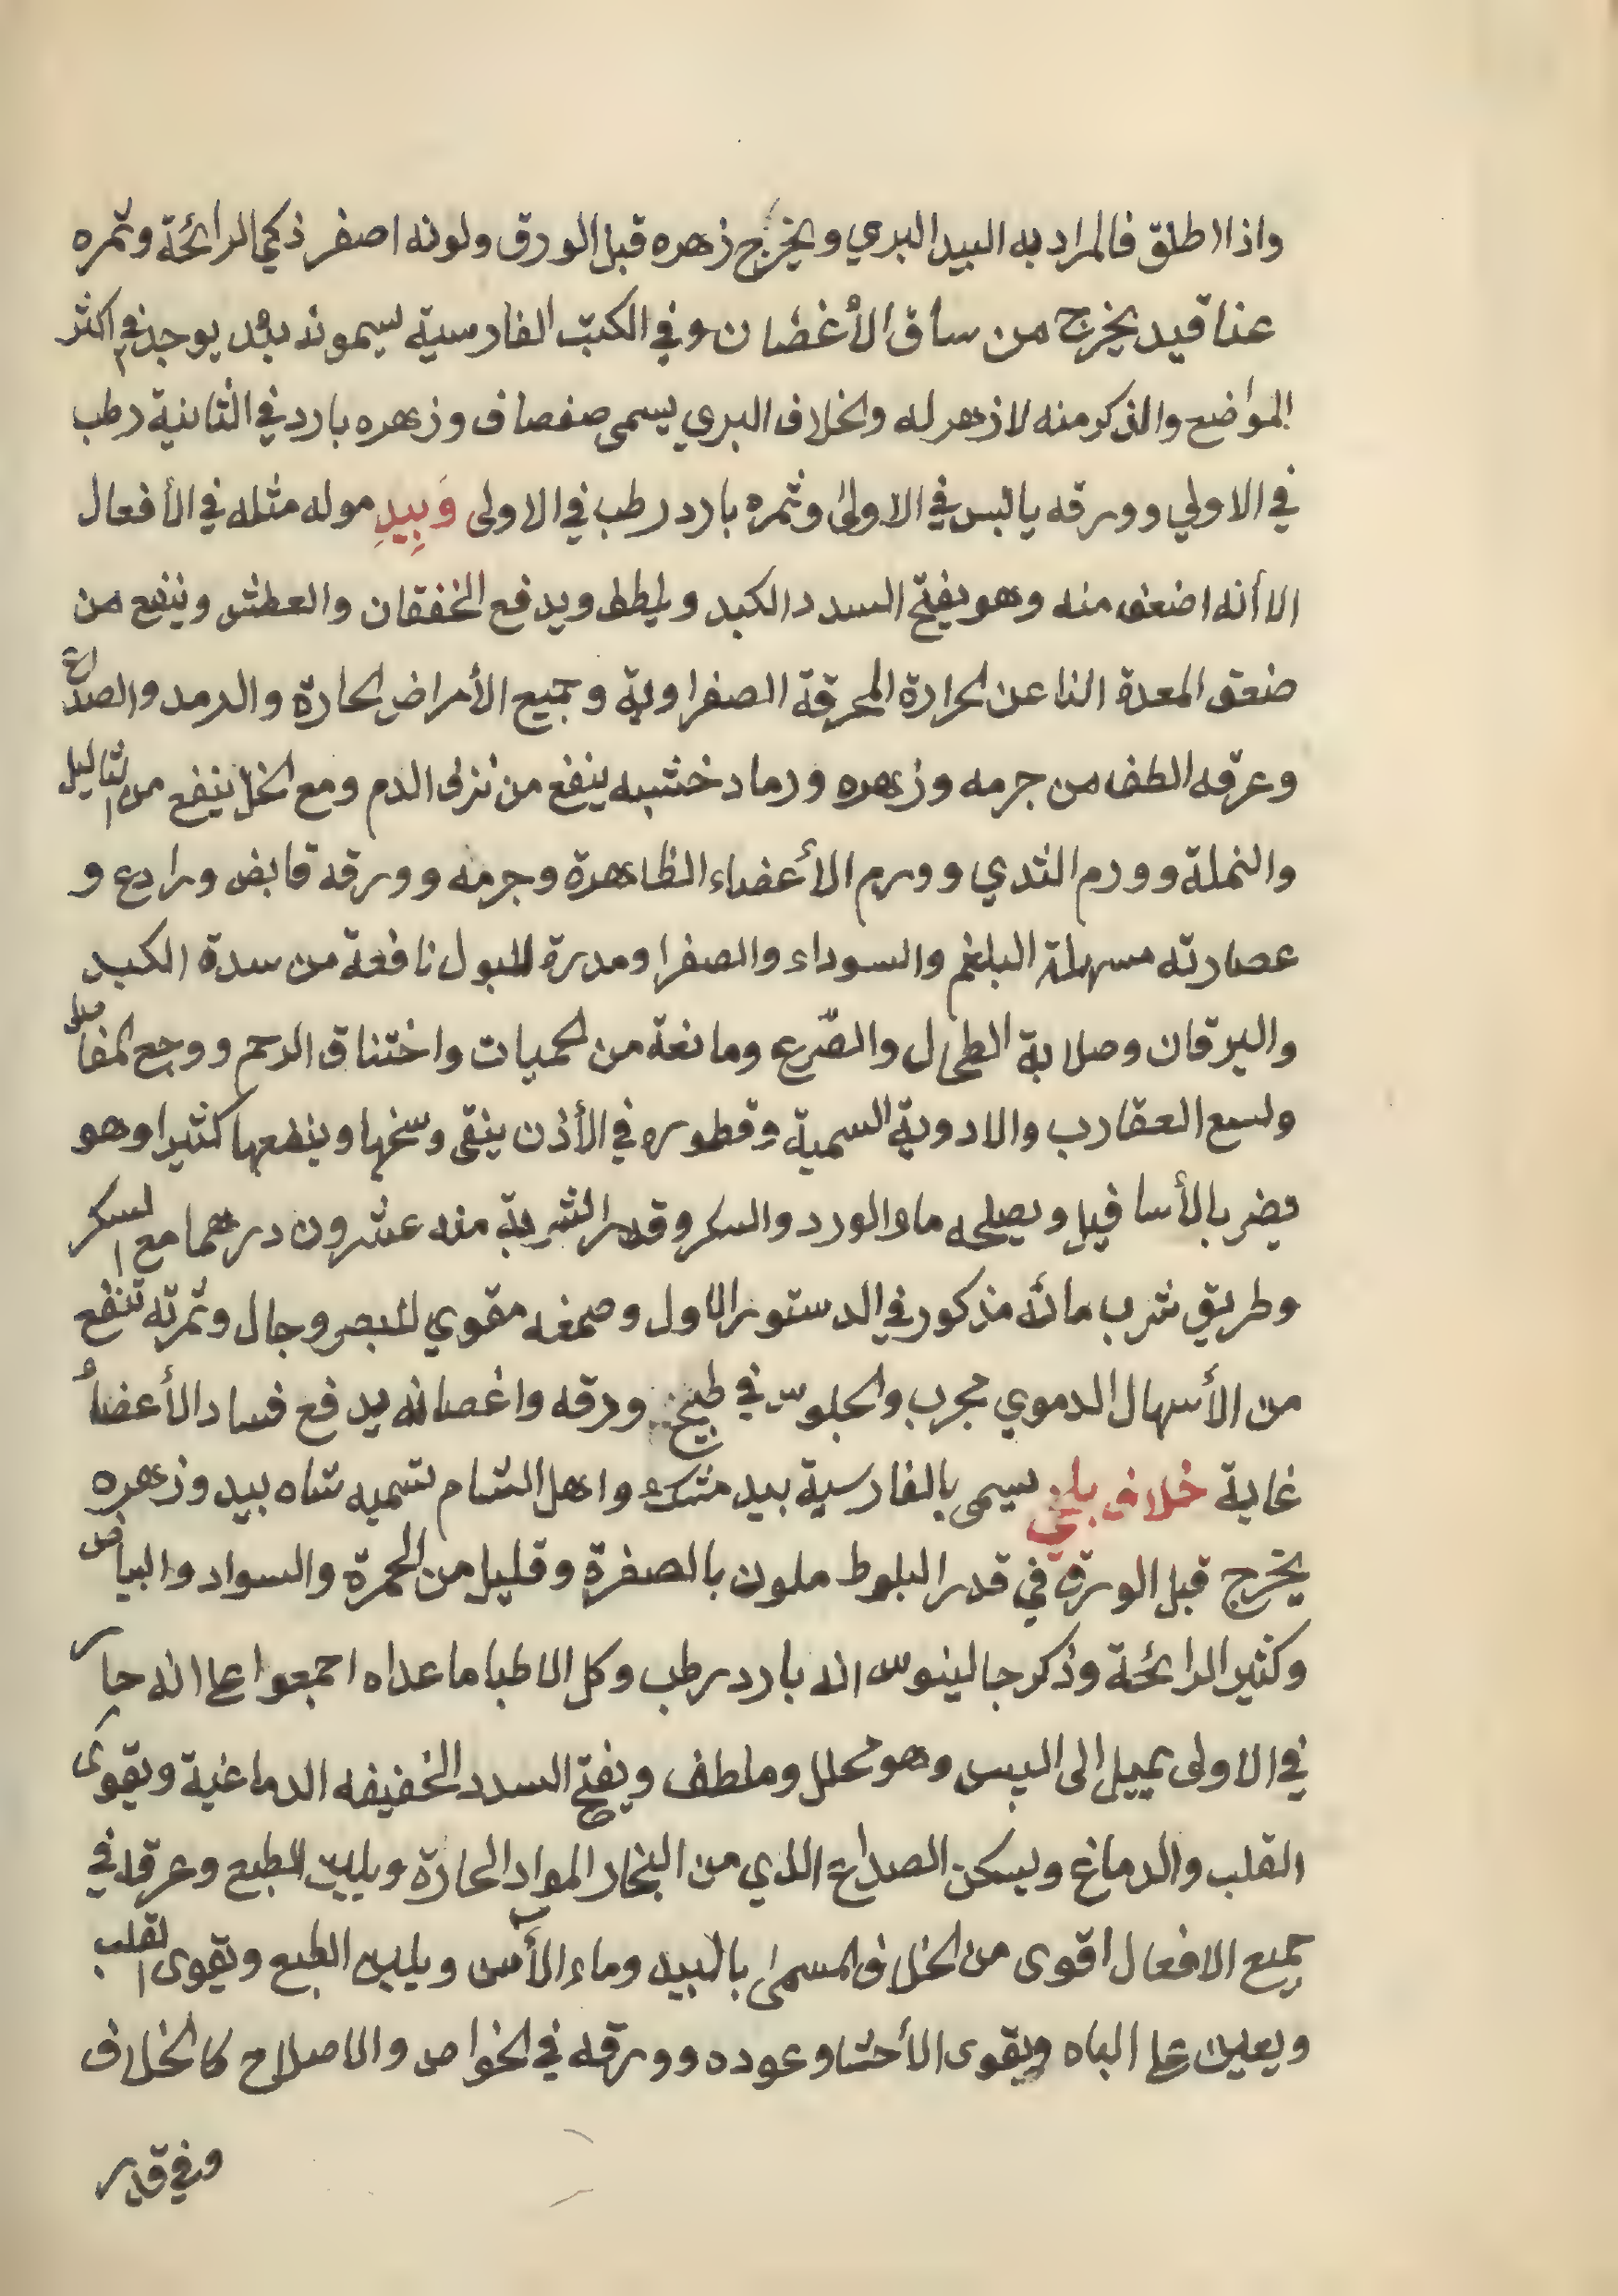 واذا اطلق فالمراد به البيد البري ويخرج زهره قبل الورق ولونه اصفر ذكي الرائحة وثمره
عناقيد يخرج من ساق الأغضان وفي الكتب الفارسية يسمونه بيد يوجد في اكثر
المواضع والذكر منه لا زهر له والخلاف البري يسمى صفصاف وزهره بارد في الثانية رطب
في الاولي وورقه يابس في الاولى وثمره بارد رطب في الاولى وَبِيدِ موله مثله في الأفعال
الا أنه اضعف منه وهو يفتح السدد الكبد ويلطف ويدفع الخفقان والعطش وينفع من
ضعف المعدة النا عن الحرارة المحرقة الصفراوية وجميع الأمراض الحارة والرمد والصداع
وعرقه الطف من جرمه وزهره ورماد خشبه ينفع من نزف الدم ومع الخل ينفع من الثاليل
والنملة وورم الثدي وورم الأعضاء الظاهرة وجرمه وورقه قابض ورادع و
عصارته مسهلة البلغم والسوداء والصفرا ومدرة للبول نافعة من سدة الكبد
واليرقان وصلابة الطحال والصّرع ومانعة من الحميات واختناق الرحم ووجع المفاصل
ولسع العقارب والادوية السمية وقطوره في الأذن ينقى وسخها وينفعها كثيرا وهو
يضر بالأسافيل ويصلحه ماء الورد والسكر وقدر الشربة منه عشرون درهما مع السكر
وطريق شرب مائه مذكور في الدستور الاول وصمغه مقوي للبصر وجال وثمرته تنفع
من الأسهال الدموي مجرب والجلوس في طبيخ ورقه واغصانه يدفع فساد الأعضاء
غاية خلاف بلخي يسمى بالفارسية بيد مشك واهل الشام تسميه شاه بيد وزهره
يخرج قبل الورق في قدر البلوط ملون بالصفرة وقليل من الحمرة والسواد والبياض
وكثير الرائحة وذكر جالينوس انه بارد رطب وكل الاطبا ما عداه اجمعوا على انه حار
في الاولى يميل الى اليبس وهو محلل وملطف ويفتح السدد الخفيفه الدماغية ويقوى
القلب والدماغ ويسكن الصداع الذي من البخار المواد الحارة ويليّن الطبع وعرقه في
جميع الافعال اقوى من الخلاف المسمى بالبيد وماء الأس ويلين الطبع ويقوى القلب
ويعين على الباه ويقوى الأحشا وعوده وورقه في الخواص والاصلاح كالخلاف
وفي قدر